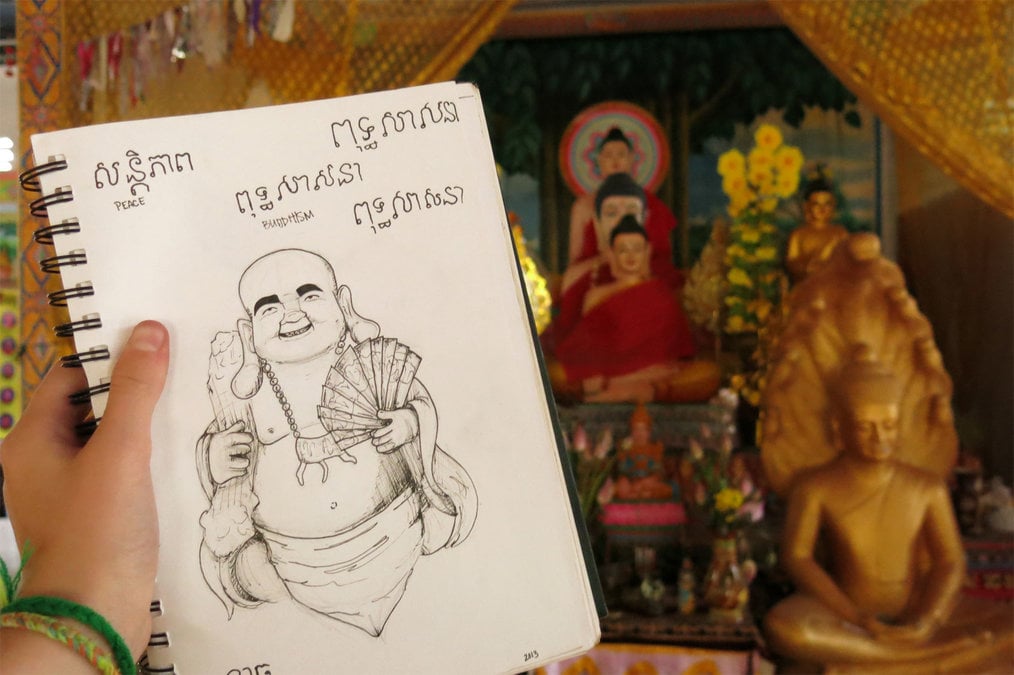 ពុទ្ធសាសនា
សន្តិភាព
PEACE
ពុទ្ធសាសនា
BUDDHISM
ពុទ្ធសាសនា
2013